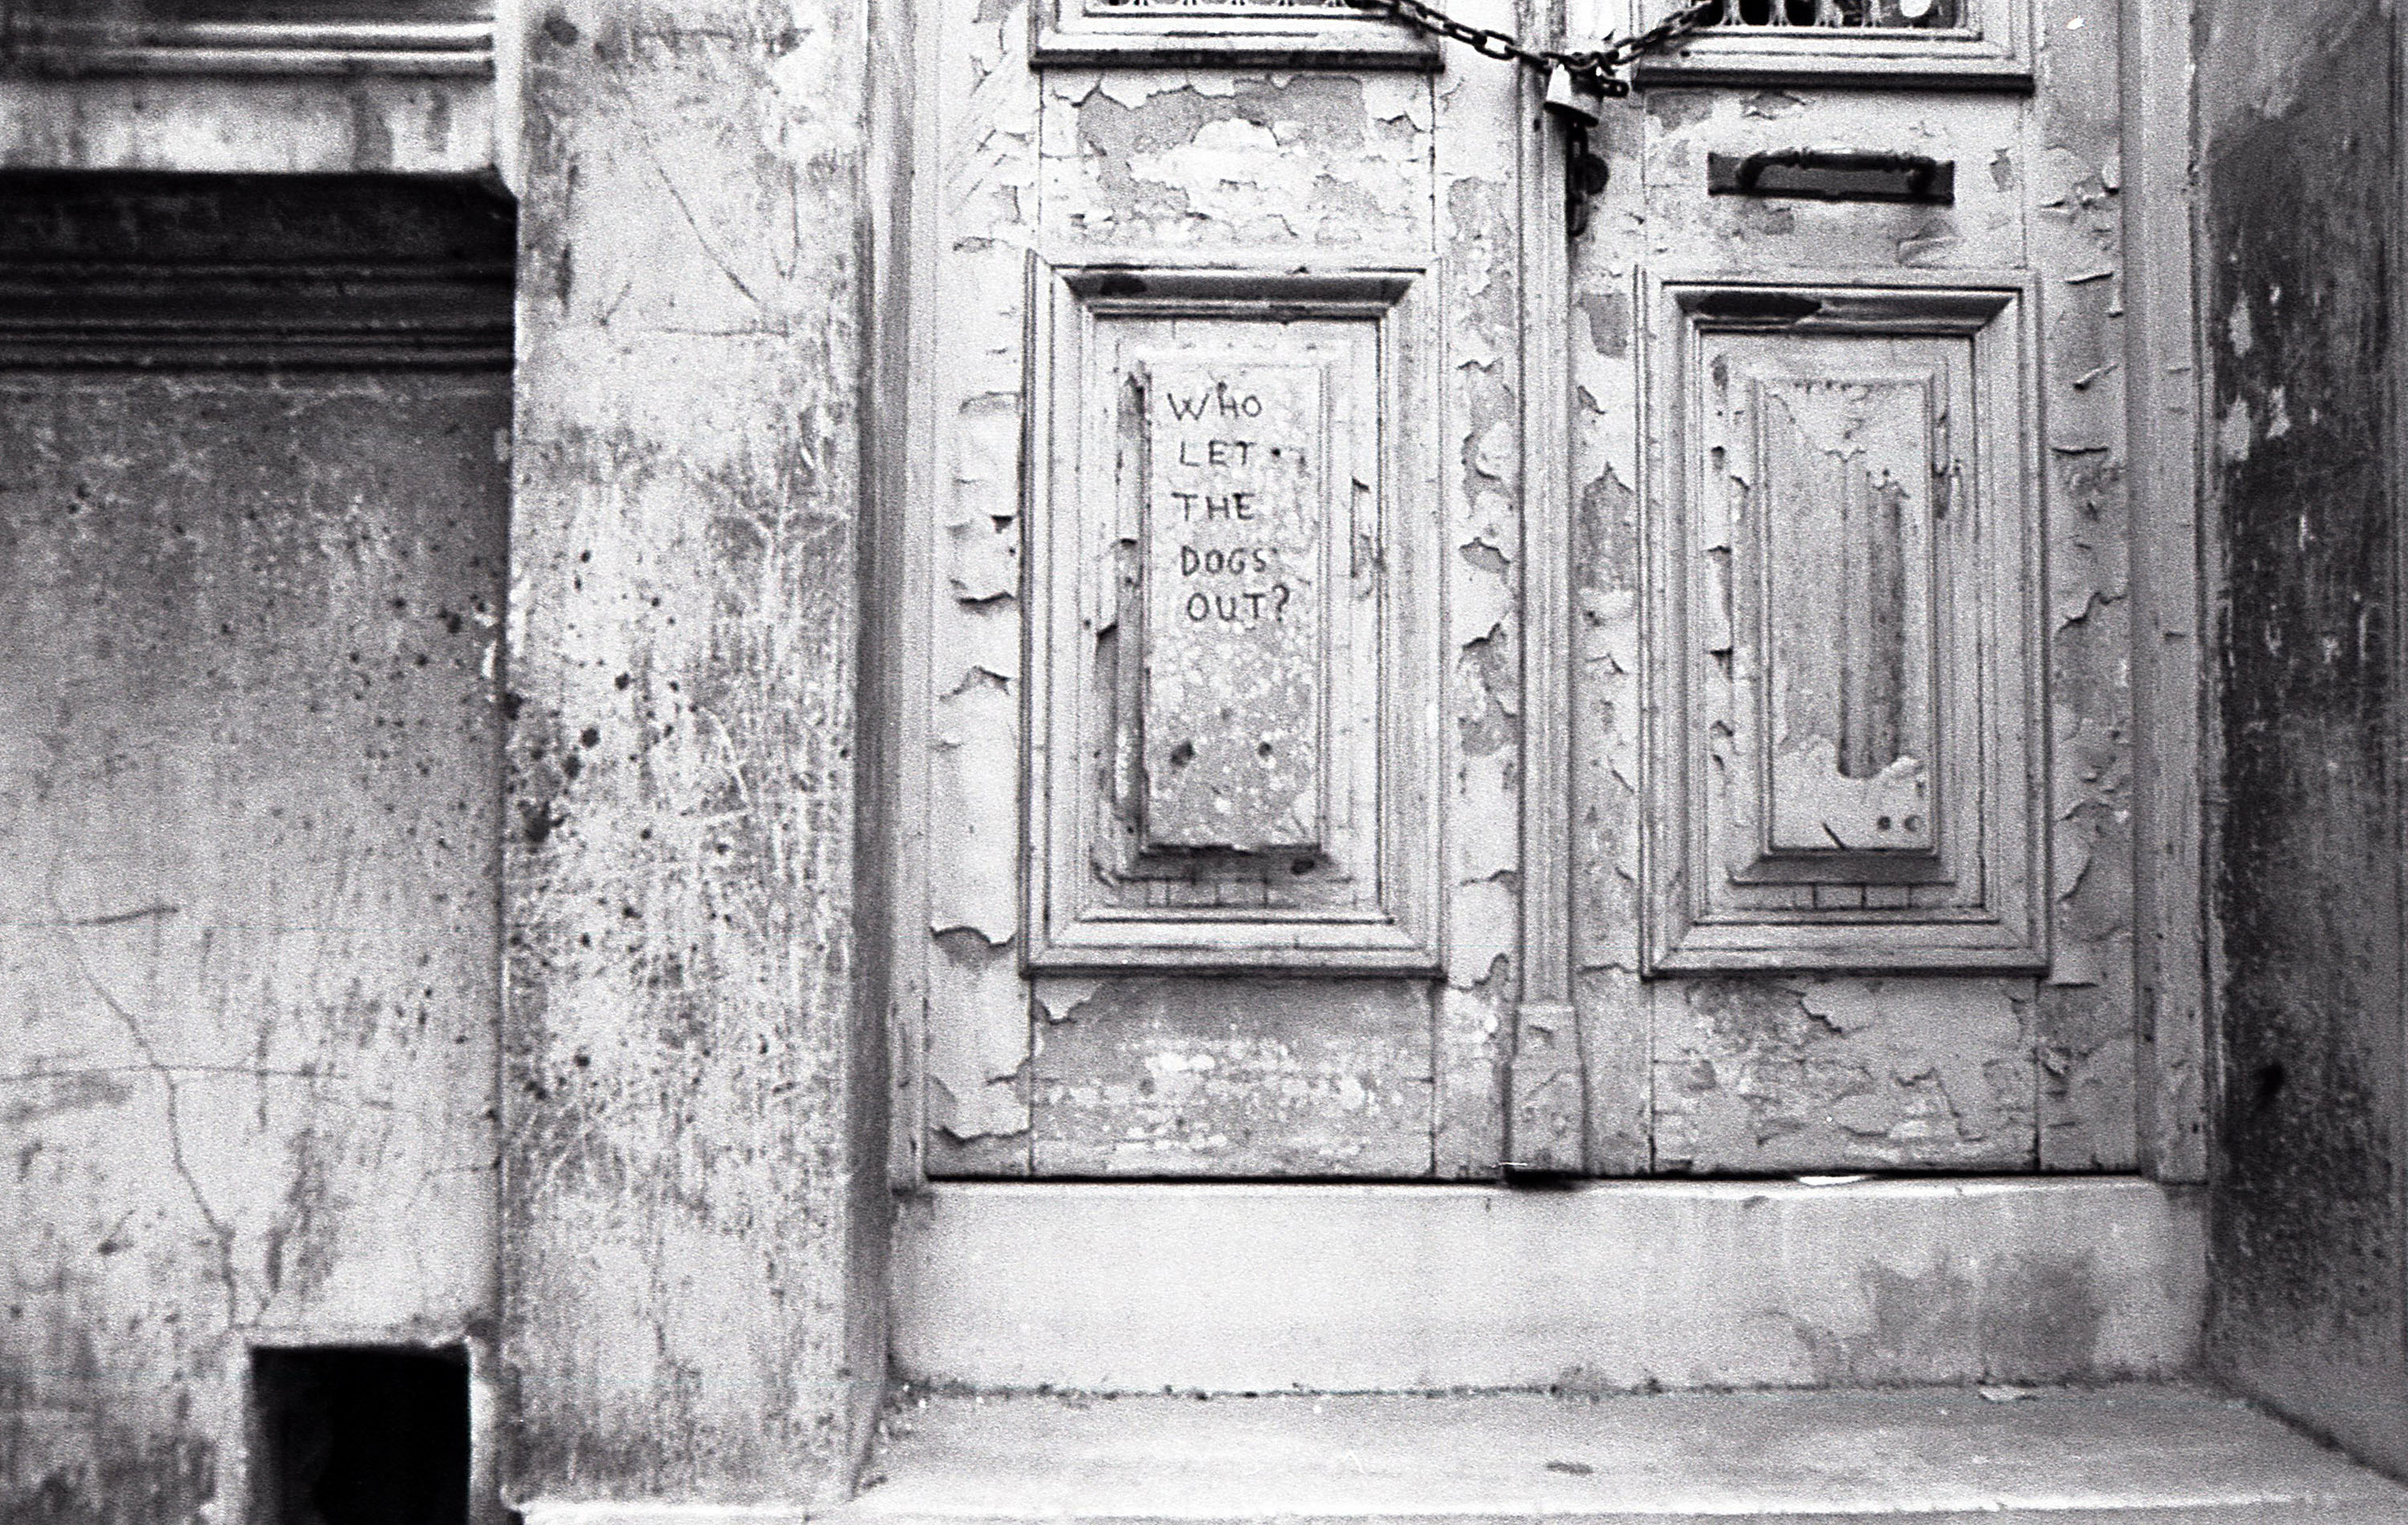 WHO
LET
THE
DOGS
OUT?